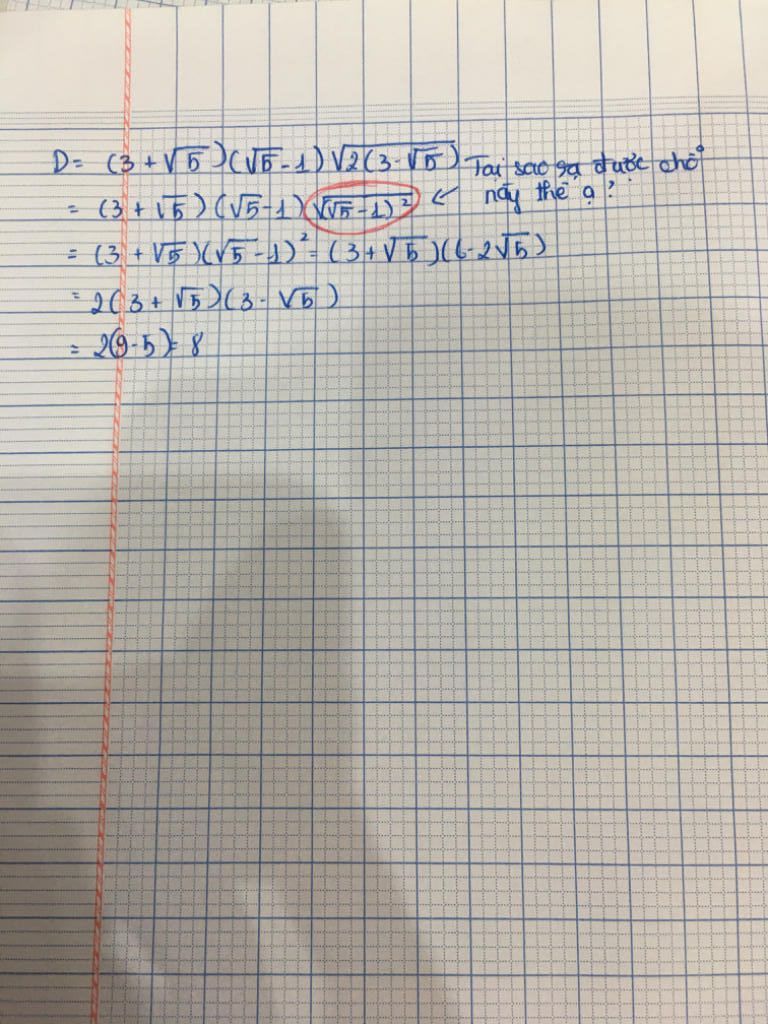 D = (3 + √5)(√5 - 1) √2(3 - √5) Tại sao ra được chỗ
= (3 + √5)(√5 - 1) √(√5 - 1)² ← này thế ạ?
= (3 + √5)(√5 - 1)² = (3 + √5)(6 - 2√5)
= 2(3 + √5)(3 - √5)
= 2(9 - 5) = 8